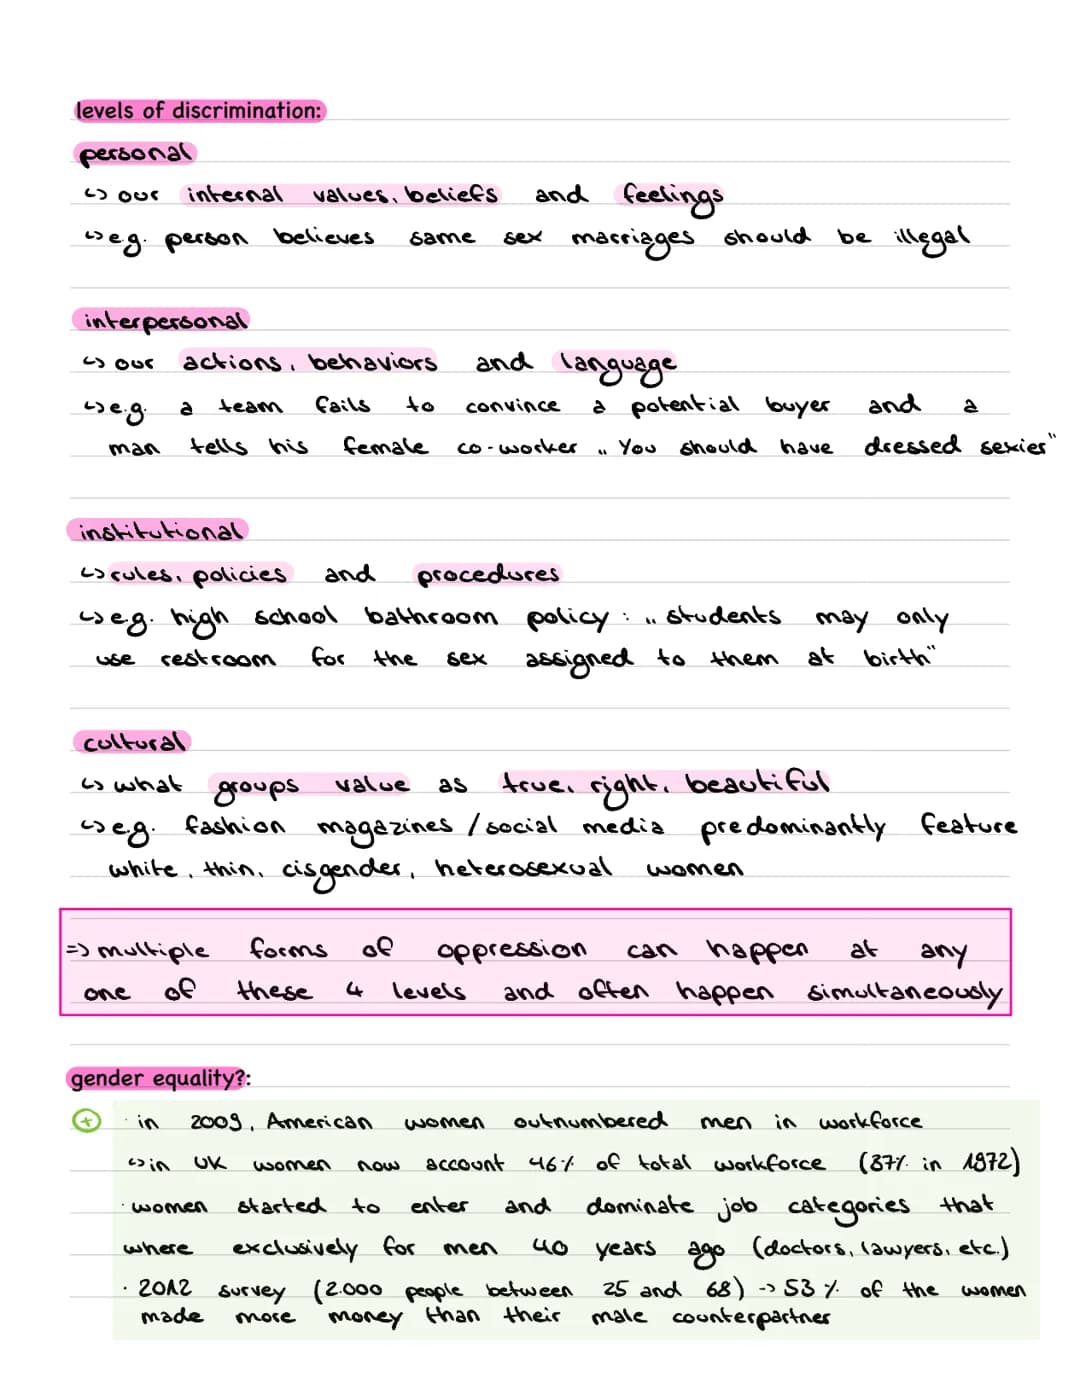 levels of discrimination:
personal
↳ our internal values, beliefs and feelings
↳ e.g. person believes same sex marriages should be illegal
interpersonal
↳ our actions, behaviors and language
↳ e.g. a team fails to convince a potential buyer and a
man tells his female co-worker „You should have dressed sexier"
institutional
↳ rules, policies and procedures
↳ e.g. high school bathroom policy: „students may only
use restroom for the sex assigned to them at birth"
cultural
↳ what groups value as true, right, beautiful
↳ e.g. fashion magazines / social media predominantly feature
white, thin, cisgender, heterosexual women
=> multiple forms of oppression can happen at any
one of these 4 levels and often happen simultaneously
gender equality?:
+ · in 2009, American women outnumbered men in workforce
↳ in UK women now account 46% of total workforce (37% in 1972)
· women started to enter and dominate job categories that
where exclusively for men 40 years ago (doctors, lawyers, etc.)
· 2012 survey (2.000 people between 25 and 68) -> 53% of the women
made more money than their male counterpartner